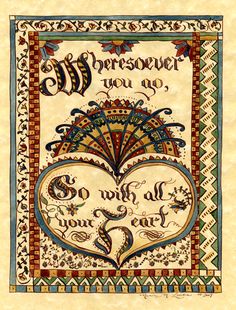 Wheresoever
you go,
Go with all
your Heart